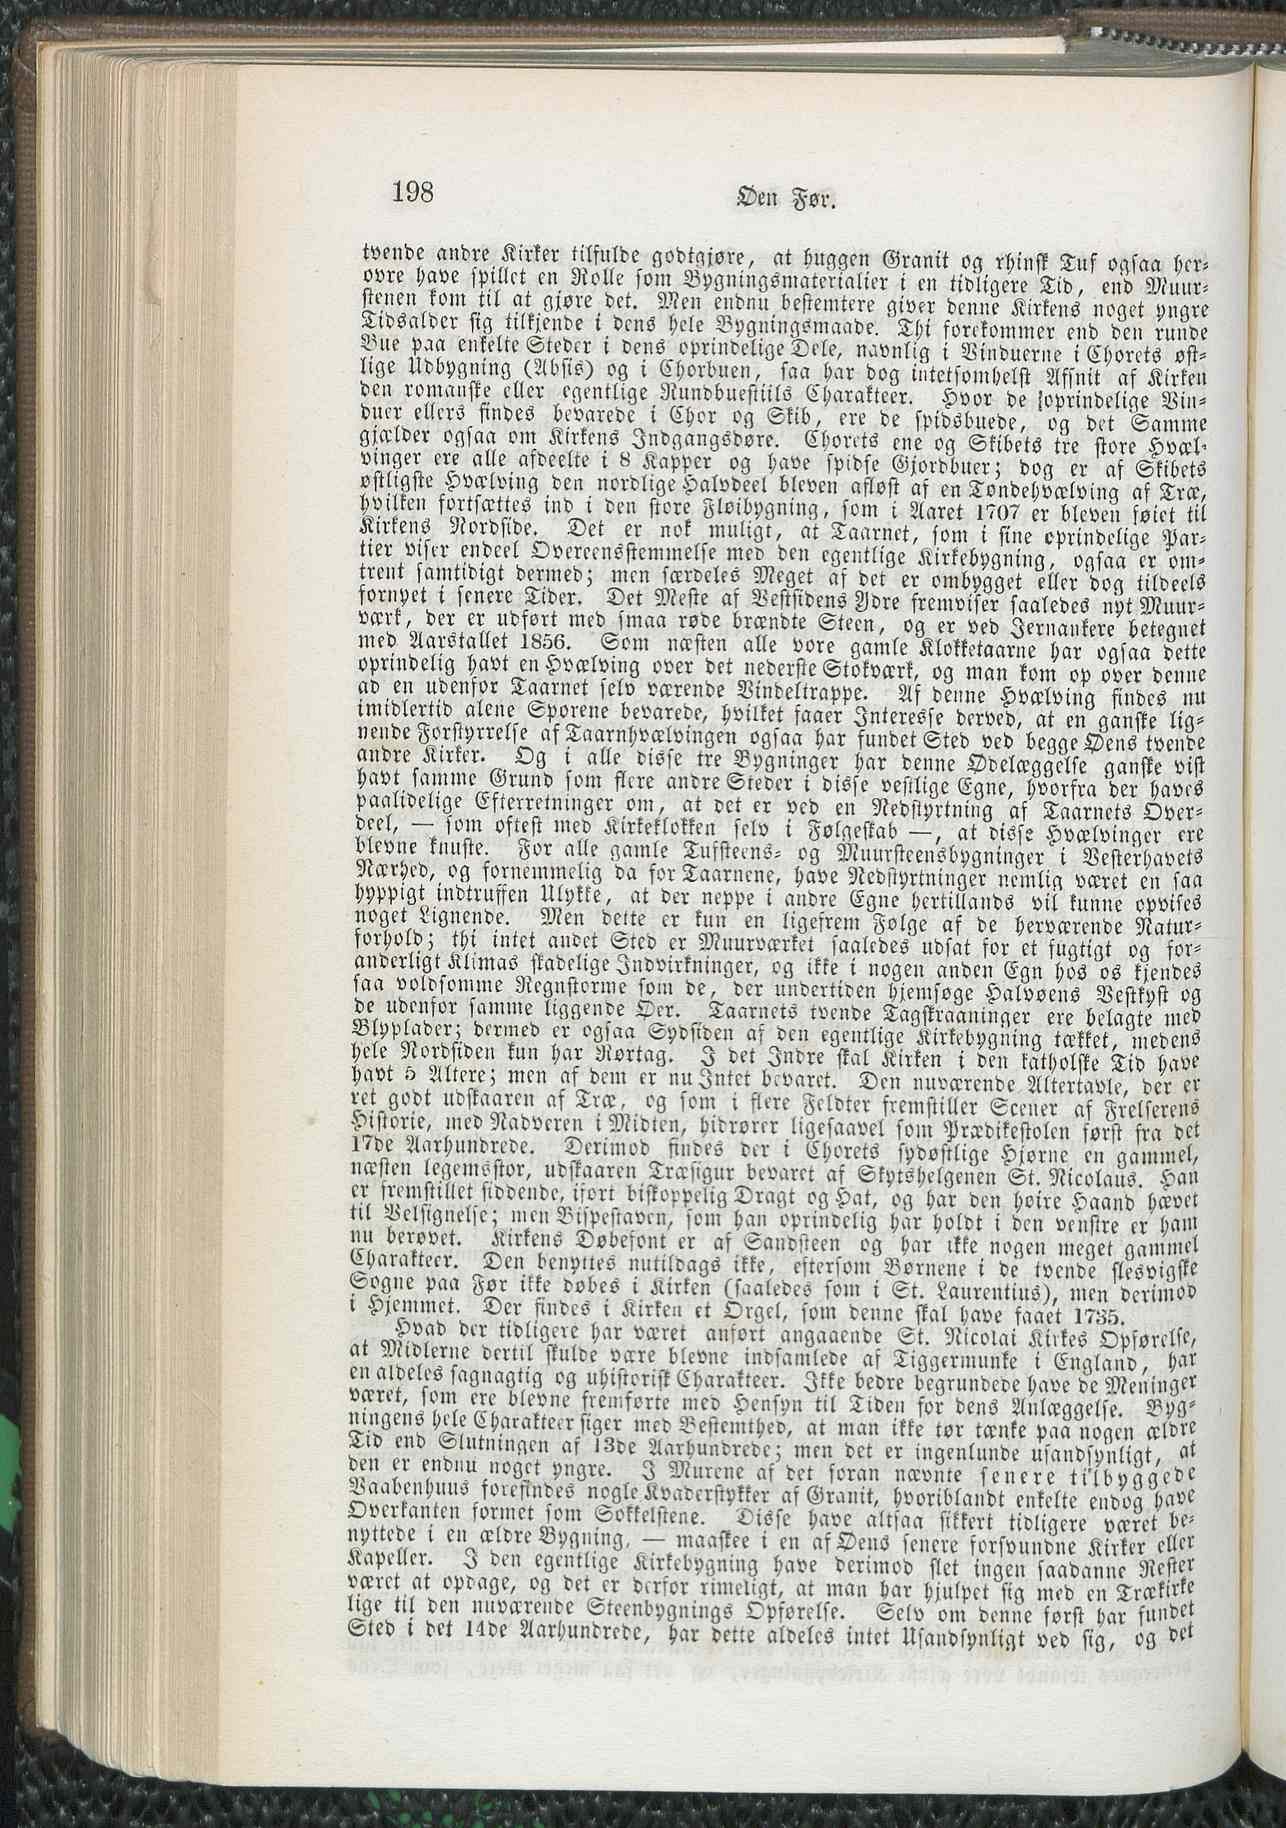 198
Øen Før.
tvende andre Kirker tilfulde godtgjøre, at huggen Granit og rhinsk Tuf ogsaa her-
ovre have spillet en Rolle som Bygningsmaterialier i en tidligere Tid, end Muur-
stenen kom til at gjøre det. Men endnu bestemtere giver denne Kirkens noget yngre
Tidsalder sig tilkjende i dens hele Bygningsmaade. Thi forekommer end den runde
Bue paa enkelte Steder i dens oprindelige Dele, navnlig i Vinduerne i Chorets øst-
lige Udbygning (Absis) og i Chorbuen, saa har dog intetsomhelst Affnit af Kirken
den romanske eller egentlige Rundbuestiils Charakteer. Hvor de oprindelige Vin-
duer ellers findes bevarede i Chor og Skib, ere de spidsbuede, og det Samme
gjælder ogsaa om Kirkens Indgangsdøre. Chorets ene og Skibets tre store Hvæl-
vinger ere alle afdeelte i 8 Kapper og have spidse Gjordbuer; dog er af Skibets
østligste Hvælving den nordlige Halvdeel bleven afløst af en Tøndehvælving af Træ,
hvilken fortsættes ind i den store Fløibygning, som i Aaret 1707 er bleven føiet til
Kirkens Nordside. Det er nok muligt, at Taarnet, som i sine oprindelige Par-
tier viser endeel Overeensstemmelse med den egentlige Kirkebygning, ogsaa er om-
trent samtidigt dermed; men særdeles Meget af det er ombygget eller dog tildeels
fornyet i senere Tider. Det Meste af Vestsidens Ydre fremviser saaledes nyt Muur-
værk, der er udført med smaa røde brændte Steen, og er ved Jernankere betegnet
med Aarstallet 1856. Som næsten alle vore gamle Klokketaarne har ogsaa dette
oprindelig havt en Hvælving over det nederste Stokværk, og man kom op over denne
ad en udenfor Taarnet selv værende Vindeltrappe. Af denne Hvælving findes nu
imidlertid alene Sporene bevarede, hvilket faaer Interesse derved, at en ganske lig-
nende Forstyrrelse af Taarnhvælvingen ogsaa har fundet Sted ved begge Øens tvende
andre Kirker. Og i alle disse tre Bygninger har denne Ødelæggelse ganske vist
havt samme Grund som flere andre Steder i disse vestlige Egne, hvorfra der haves
paalidelige Efterretninger om, at det er ved en Nedstyrtning af Taarnets Over-
deel, — som oftest med Kirkeklokken selv i Følgeskab —, at disse Hvælvinger ere
blevne knuste. For alle gamle Tufsteens- og Muursteensbygninger i Vesterhavets
Nærhed, og fornemmelig da for Taarnene, have Nedstyrtninger nemlig været en saa
hyppigt indtruffen Ulykke, at der neppe i andre Egne hertillands vil kunne opvises
noget Lignende. Men dette er kun en ligefrem Følge af de herværende Natur-
forhold; thi intet andet Sted er Muurværket saaledes udsat for et fugtigt og for-
anderligt Klimas skadelige Indvirkninger, og ikke i nogen anden Egn hos os kjendes
saa voldsomme Regnstorme som de, der undertiden hjemsøge Halvøens Vestkyst og
de udenfor samme liggende Øer. Taarnets tvende Tagskraaninger ere belagte med
Blyplader; dermed er ogsaa Sydsiden af den egentlige Kirkebygning tækket, medens
hele Nordsiden kun har Rørtag. I det Indre skal Kirken i den katholske Tid have
havt 5 Altere; men af dem er nu Intet bevaret. Den nuværende Altertavle, der er
ret godt udskaaren af Træ, og som i flere Feldter fremstiller Scener af Frelserens
Historie, med Nadveren i Midten, hidrører ligesaavel som Prædikestolen først fra det
17de Aarhundrede. Derimod findes der i Chorets sydøstlige Hjørne en gammel,
næsten legemsstor, udskaaren Træfigur bevaret af Skytshelgenen St. Nicolaus. Han
er fremstillet siddende, iført biskoppelig Dragt og Hat, og har den høire Haand hævet
til Velsignelse; men Bispestaven, som han oprindelig har holdt i den venstre er ham
nu berøvet. Kirkens Døbefont er af Sandsteen og har ikke nogen meget gammel
Charakteer. Den benyttes nutildags ikke, eftersom Børnene i de tvende slesvigske
Sogne paa Før ikke døbes i Kirken (saaledes som i St. Laurentius), men derimod
i Hjemmet. Der findes i Kirken et Orgel, som denne skal have faaet 1735.
Hvad der tidligere har været anført angaaende St. Nicolai Kirkes Opførelse,
at Midlerne dertil skulde være blevne indsamlede af Tiggermunke i England, har
en aldeles sagnagtig og uhistorisk Charakteer. Ikke bedre begrundede have de Meninger
været, som ere blevne fremførte med Hensyn til Tiden for dens Anlæggelse. Byg-
ningens hele Charakteer siger med Bestemthed, at man ikke tør tænke paa nogen ældre
Tid end Slutningen af 13de Aarhundrede; men det er ingenlunde usandsynligt, at
den er endnu noget yngre. I Murene af det foran nævnte senere tilbyggede
Vaabenhuus forefindes nogle Kvaderstykker af Granit, hvoriblandt enkelte endog have
Overkanten formet som Sokkelstene. Disse have altsaa sikkert tidligere været be-
nyttede i en ældre Bygning, — maaskee i en af Øens senere forsvundne Kirker eller
Kapeller. I den egentlige Kirkebygning have derimod slet ingen saadanne Rester
været at opdage, og det er derfor rimeligt, at man har hjulpet sig med en Trækirke
lige til den nuværende Steenbygnings Opførelse. Selv om denne først har fundet
Sted i det 14de Aarhundrede, har dette aldeles intet Usandsynligt ved sig, og det